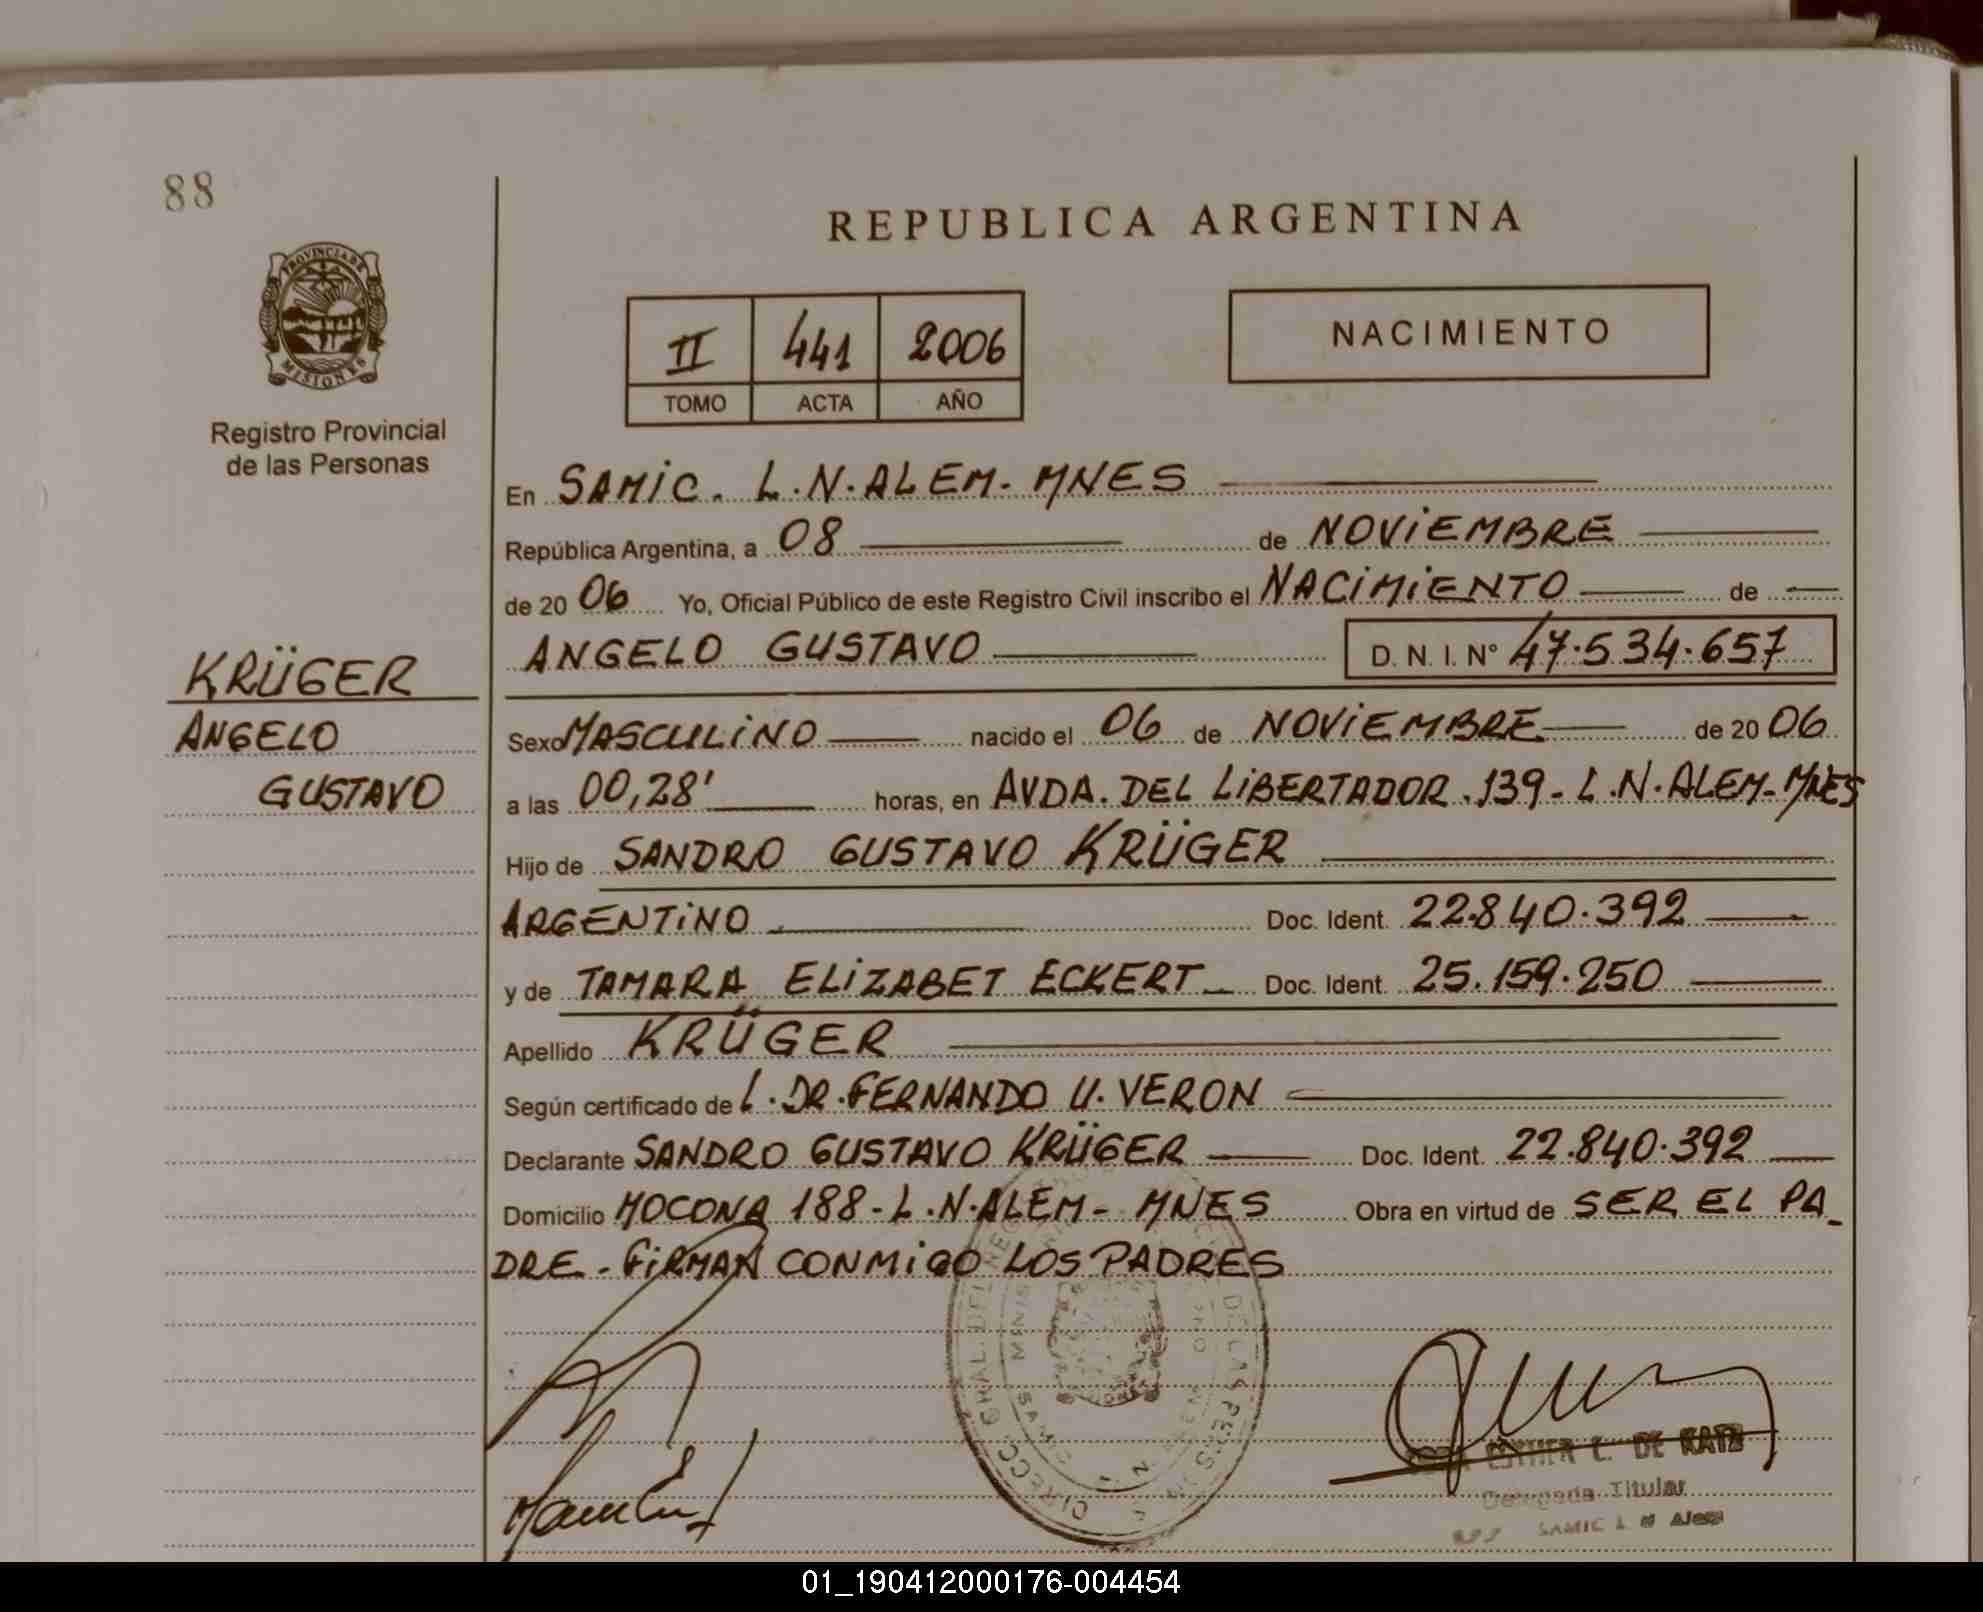 88
PROVINCIA DE
MISIONES
Registro Provincial
de las Personas
REPUBLICA ARGENTINA
II 441 2006
TOMO ACTA AÑO
NACIMIENTO
En SAMIC. L.N.ALEM. MNES
República Argentina, a 08 de NOVIEMBRE
de 20 06 Yo, Oficial Público de este Registro Civil inscribo el NACIMIENTO de
ANGELO GUSTAVO D.N.I. N° 47.534.657
KRÜGER
ANGELO
GUSTAVO
Sexo MASCULINO nacido el 06 de NOVIEMBRE de 20 06
a las 00,28' horas, en AVDA. DEL LIBERTADOR.139-L.N.ALEM-MNES
Hijo de SANDRO GUSTAVO KRÜGER
ARGENTINO Doc. Ident. 22.840.392
y de TAMARA ELIZABET ECKERT Doc. Ident. 25.159.250
Apellido KRÜGER
Según certificado de L.DR.FERNANDO U. VERON
Declarante SANDRO GUSTAVO KRÜGER Doc. Ident. 22.840.392
Domicilio MOCONA 188-L.N.ALEM- MNES Obra en virtud de SER EL PA_
DRE-FIRMAN CONMIGO LOS PADRES
ESTHER C. DE KATZ
Delegada Titular
SAMIC L N Alem
01_190412000176-004454